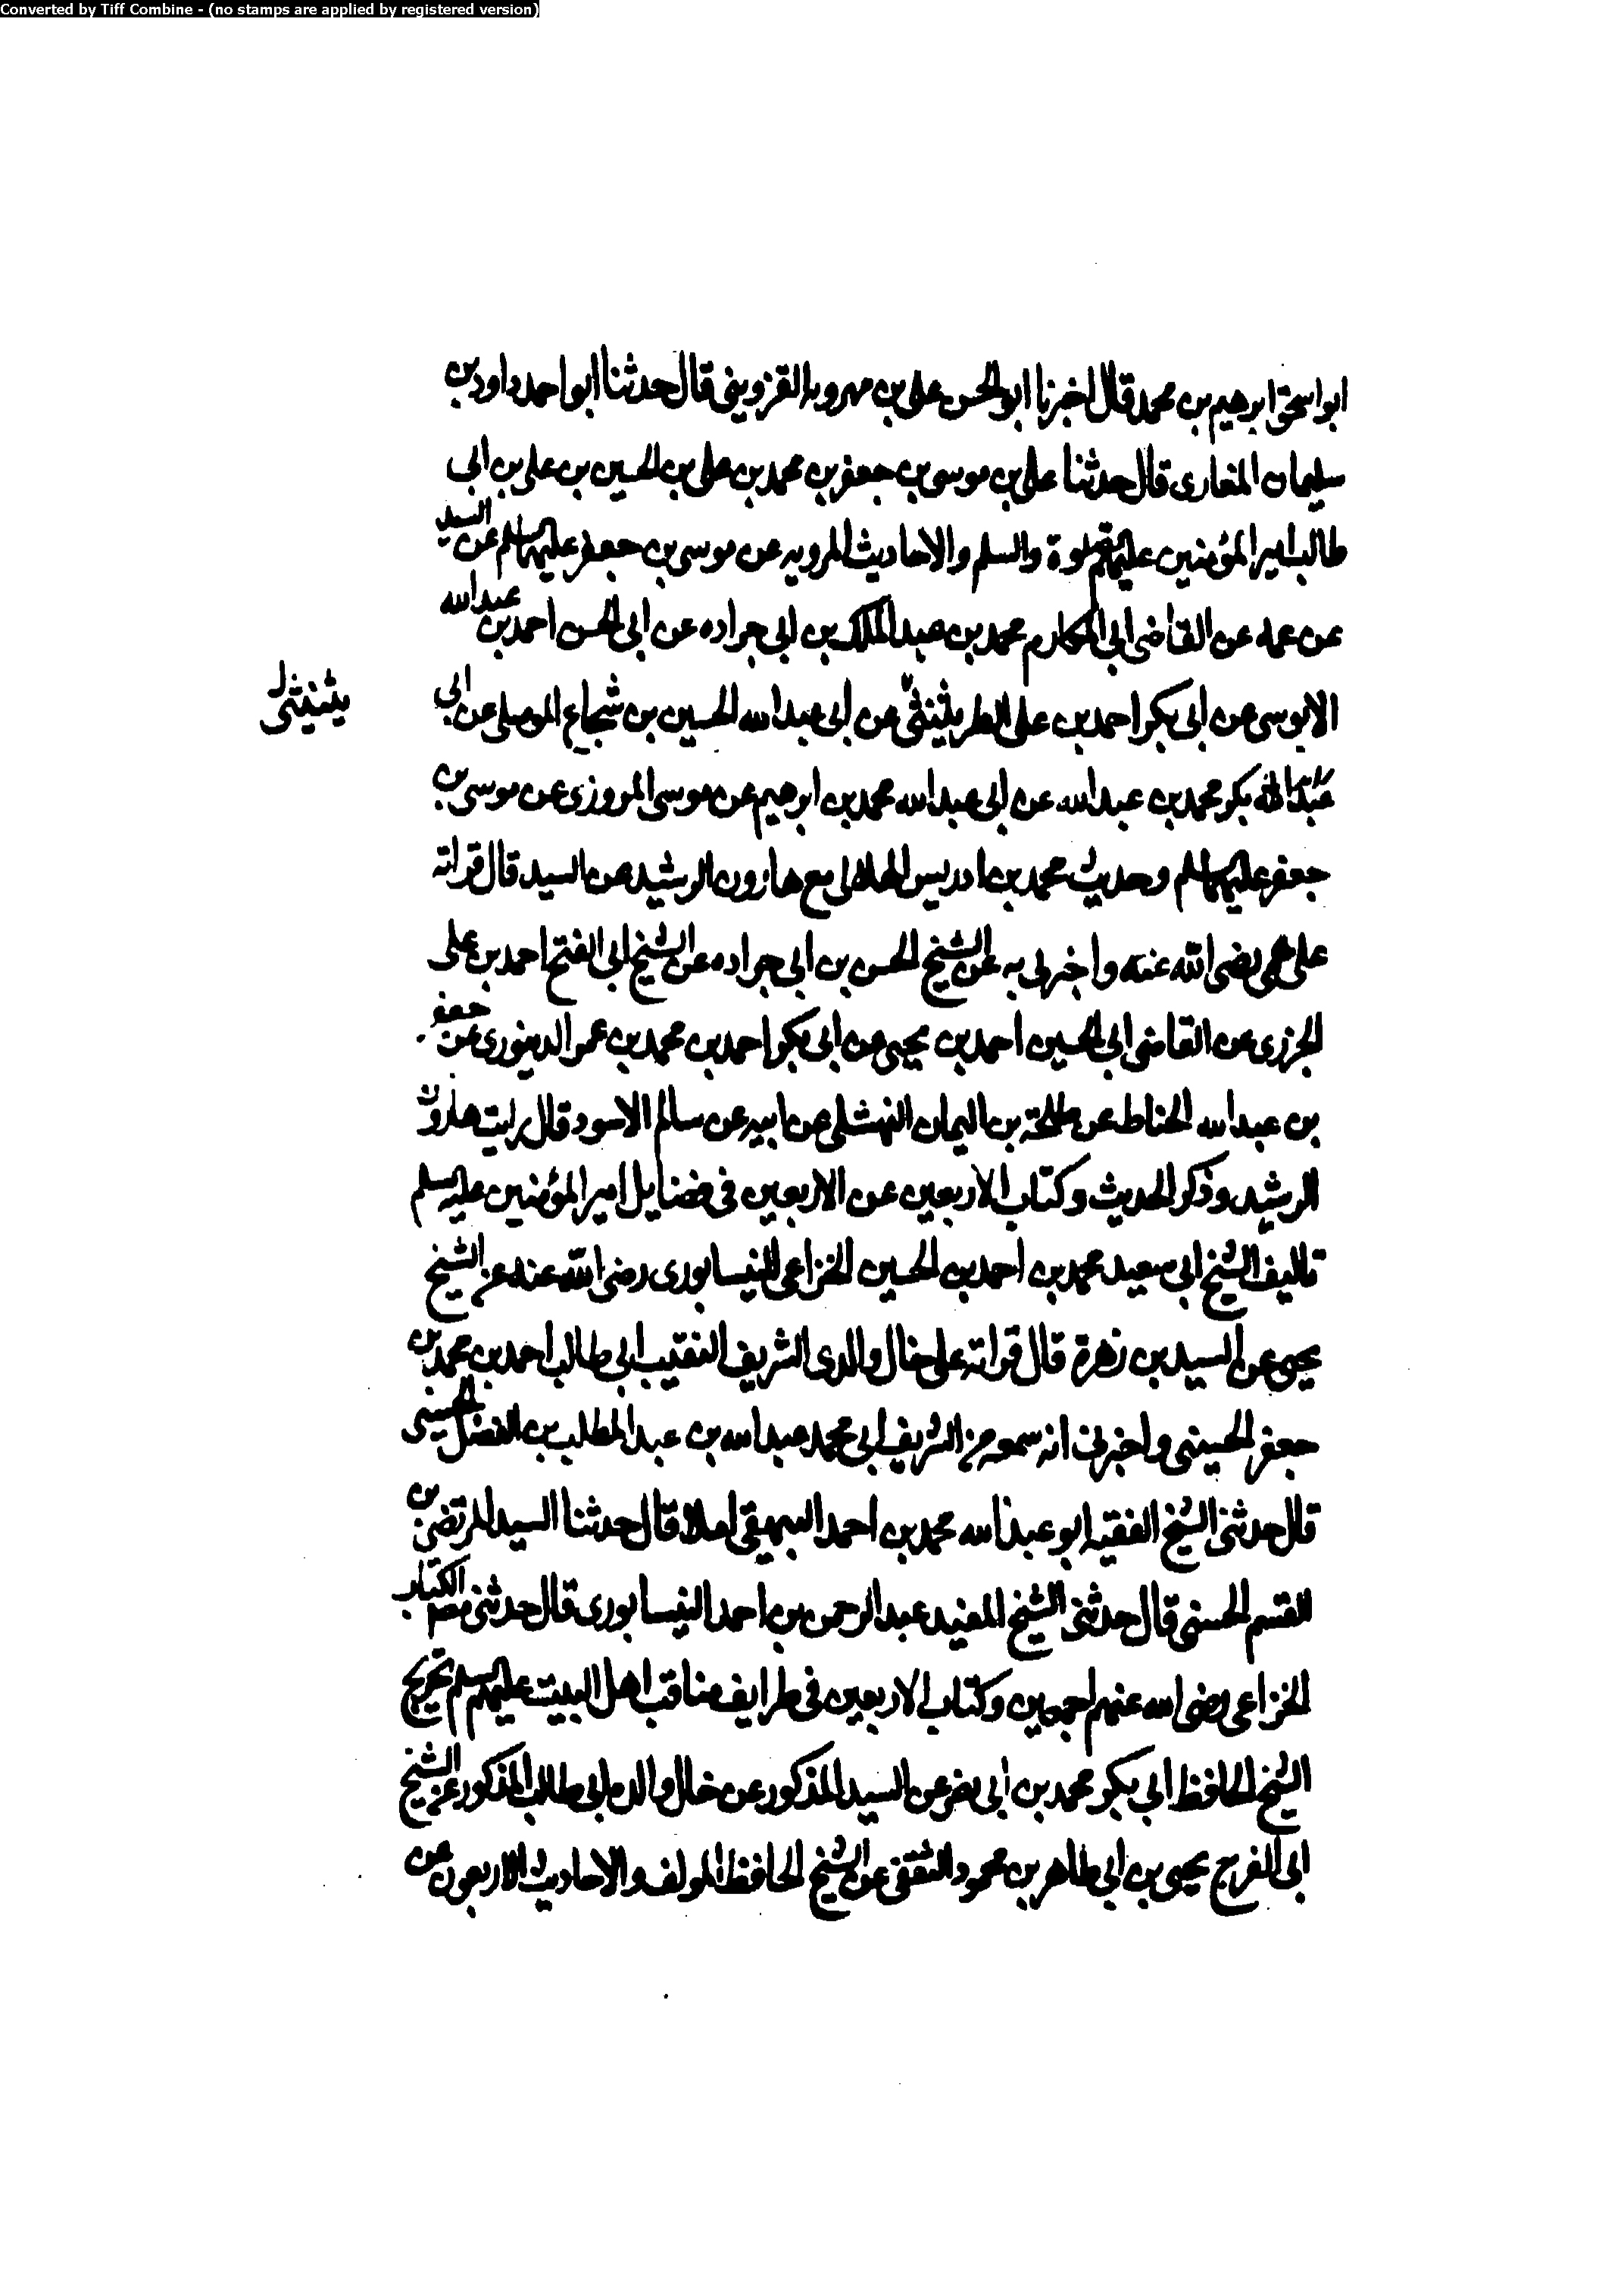 Converted by Tiff Combine - (no stamps are applied by registered version)
ابو اسحق ابرهيم بن محمد قال اخبرنا ابو الحسن على بن مهرويه القزوينى قال حدثنا ابو احمد داود بن
سليمان المغارى قال حدثنا على بن موسى بن جعفر بن محمد بن على بن الحسين بن على بن ابى
طالب امير المؤمنين عليهم الصلوة والسلم والاحاديث المرويه عن موسى بن جعفر عليهما السلم عن السيد
عن عمه عن القاضى ابى المكارم محمد بن عبد الملك بن ابى جراده عن ابى الحسن احمد بن عبد الله
الابوسى عن ابى بكر احمد بن على الطريثيثى عن ابى عبد الله الحسين بن شجاع الموصلى عن ابى
يثيثى
بكر محمد بن عبد الله عن ابى عبد الله محمد بن ابرهيم عن موسى المروزى عن موسى بن
جعفر عليهما السلم وحديث محمد بن ادريس الهلالى مع هارون الرشيد عن السيد قال قراته
على عمى رضى الله عنه واخبرنى به عن الشيخ الحسن بن ابى جراده عن الشيخ ابى الفتح احمد بن على
الجزرى عن القاضى ابى الحسين احمد بن يحيى عن ابى بكر احمد بن محمد بن عمر الدينورى عن جعفر
بن عبد الله الحناط عن طلحة بن اليمان النهشلى عن ابيه عن سالم الاسود قال رايت هارون
الرشيد وذكر الحديث وكتاب الاربعين عن الاربعين فى فضايل امير المؤمنين عليه السلم
تاليف الشيخ ابى سعيد محمد بن احمد بن الحسين الخزاعى النيسابورى رضى الله عنه عن الشيخ
يحيى عن السيد بن زهرة قال قراته على خال والدى الشريف النقيب ابى طالب احمد بن محمد بن
جعفر الحسينى واخبرنى انه سمعه من الشريف ابى محمد عبد الله بن عبد المطلب بن الفضل الحسينى
قال حدثنى الشيخ الفقيه ابو عبد الله محمد بن احمد البيهقى املاء قال حدثنا السيد المرتضى بن
القسم الحسنى قال حدثنى الشيخ المفيد عبد الرحمن بن احمد النيسابورى قال حدثنى مصنف الكتاب
الخزاعى رضى الله عنهم اجمعين وكتاب الاربعين فى طرايف مناقب اهل البيت عليهم السلم تخريج
الشيخ الحافظ ابى بكر محمد بن ابى نصر عن السيد المذكور عن خال والده ابى طالب المذكور عن الشيخ
ابى الفرج يحيى بن ابى طاهر بن محمود الثقفى عن الشيخ الحافظ المولف والاحاديث الاربعون عن